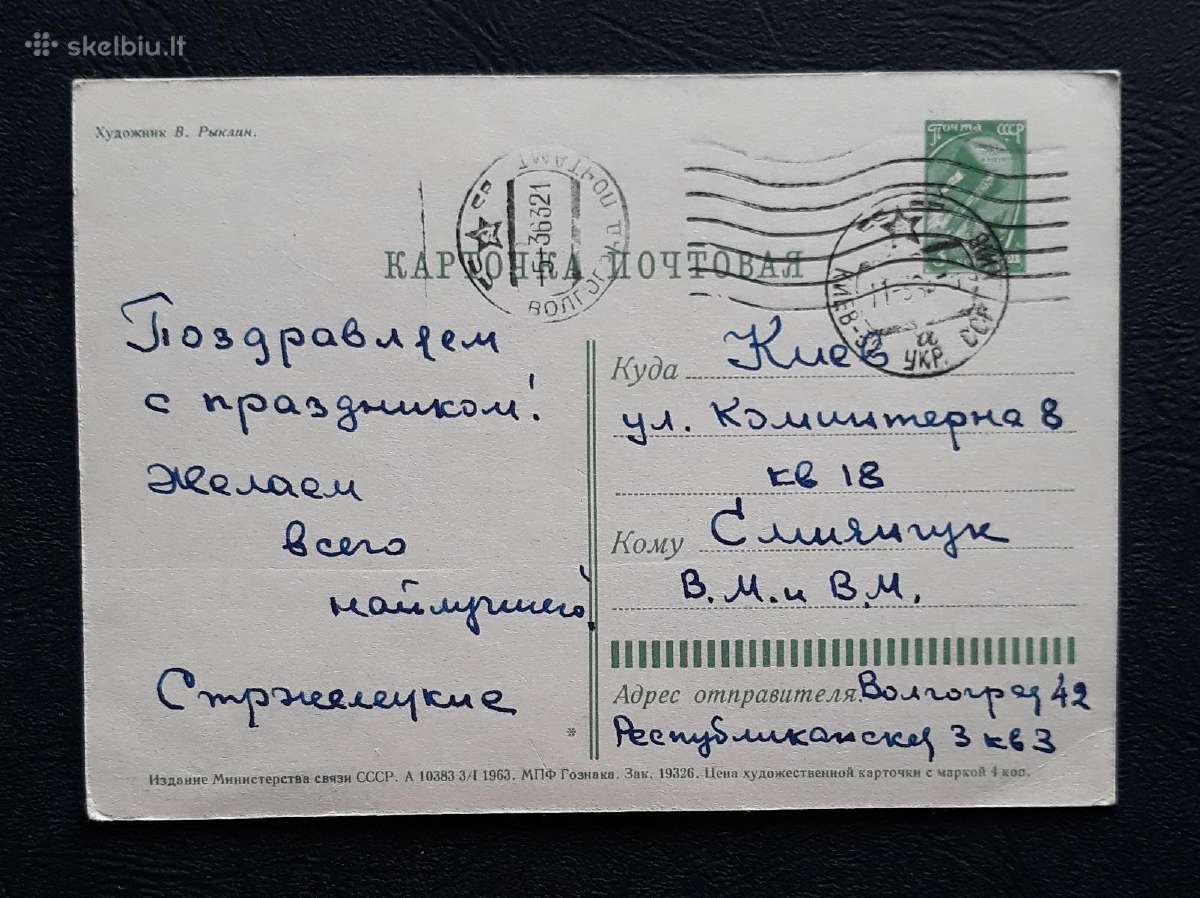 skelbiu.lt
Художник В. Рыклин.
Почта СССР
ПОЧТАМТ
5-36321
ВОЛГОГ
КАРТОЧКА ПОЧТОВАЯ
КИЕВ
УКР. ССР
Поздравляем
с праздником!
Желаем
всего
найлучшего!
Стржелецкие
Куда Киев
ул. Коминтерна 8
кв 18
Кому Смиянчук
В.М. и В.М.
Адрес отправителя: Волгоград 42
Республиканская 3 кв 3
Издание Министерства связи СССР. А 10383 3/I 1963. МПФ Гознака. Зак. 19326. Цена художественной карточки с маркой 4 коп.